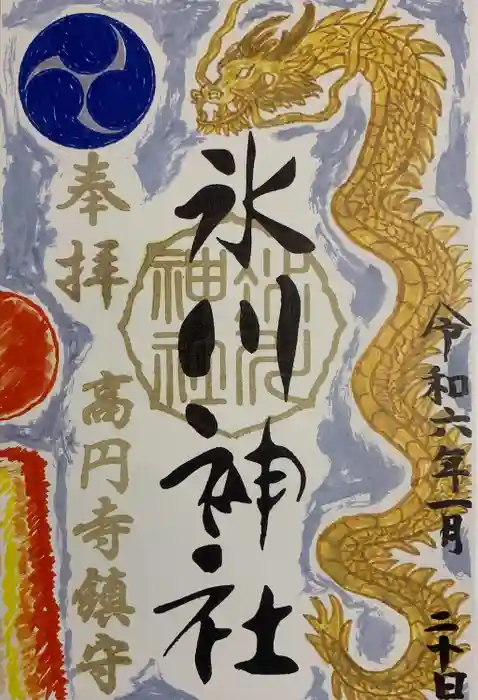 令和六年一月
二十日
氷川神社
氷川
神社
奉拝
高円寺鎮守